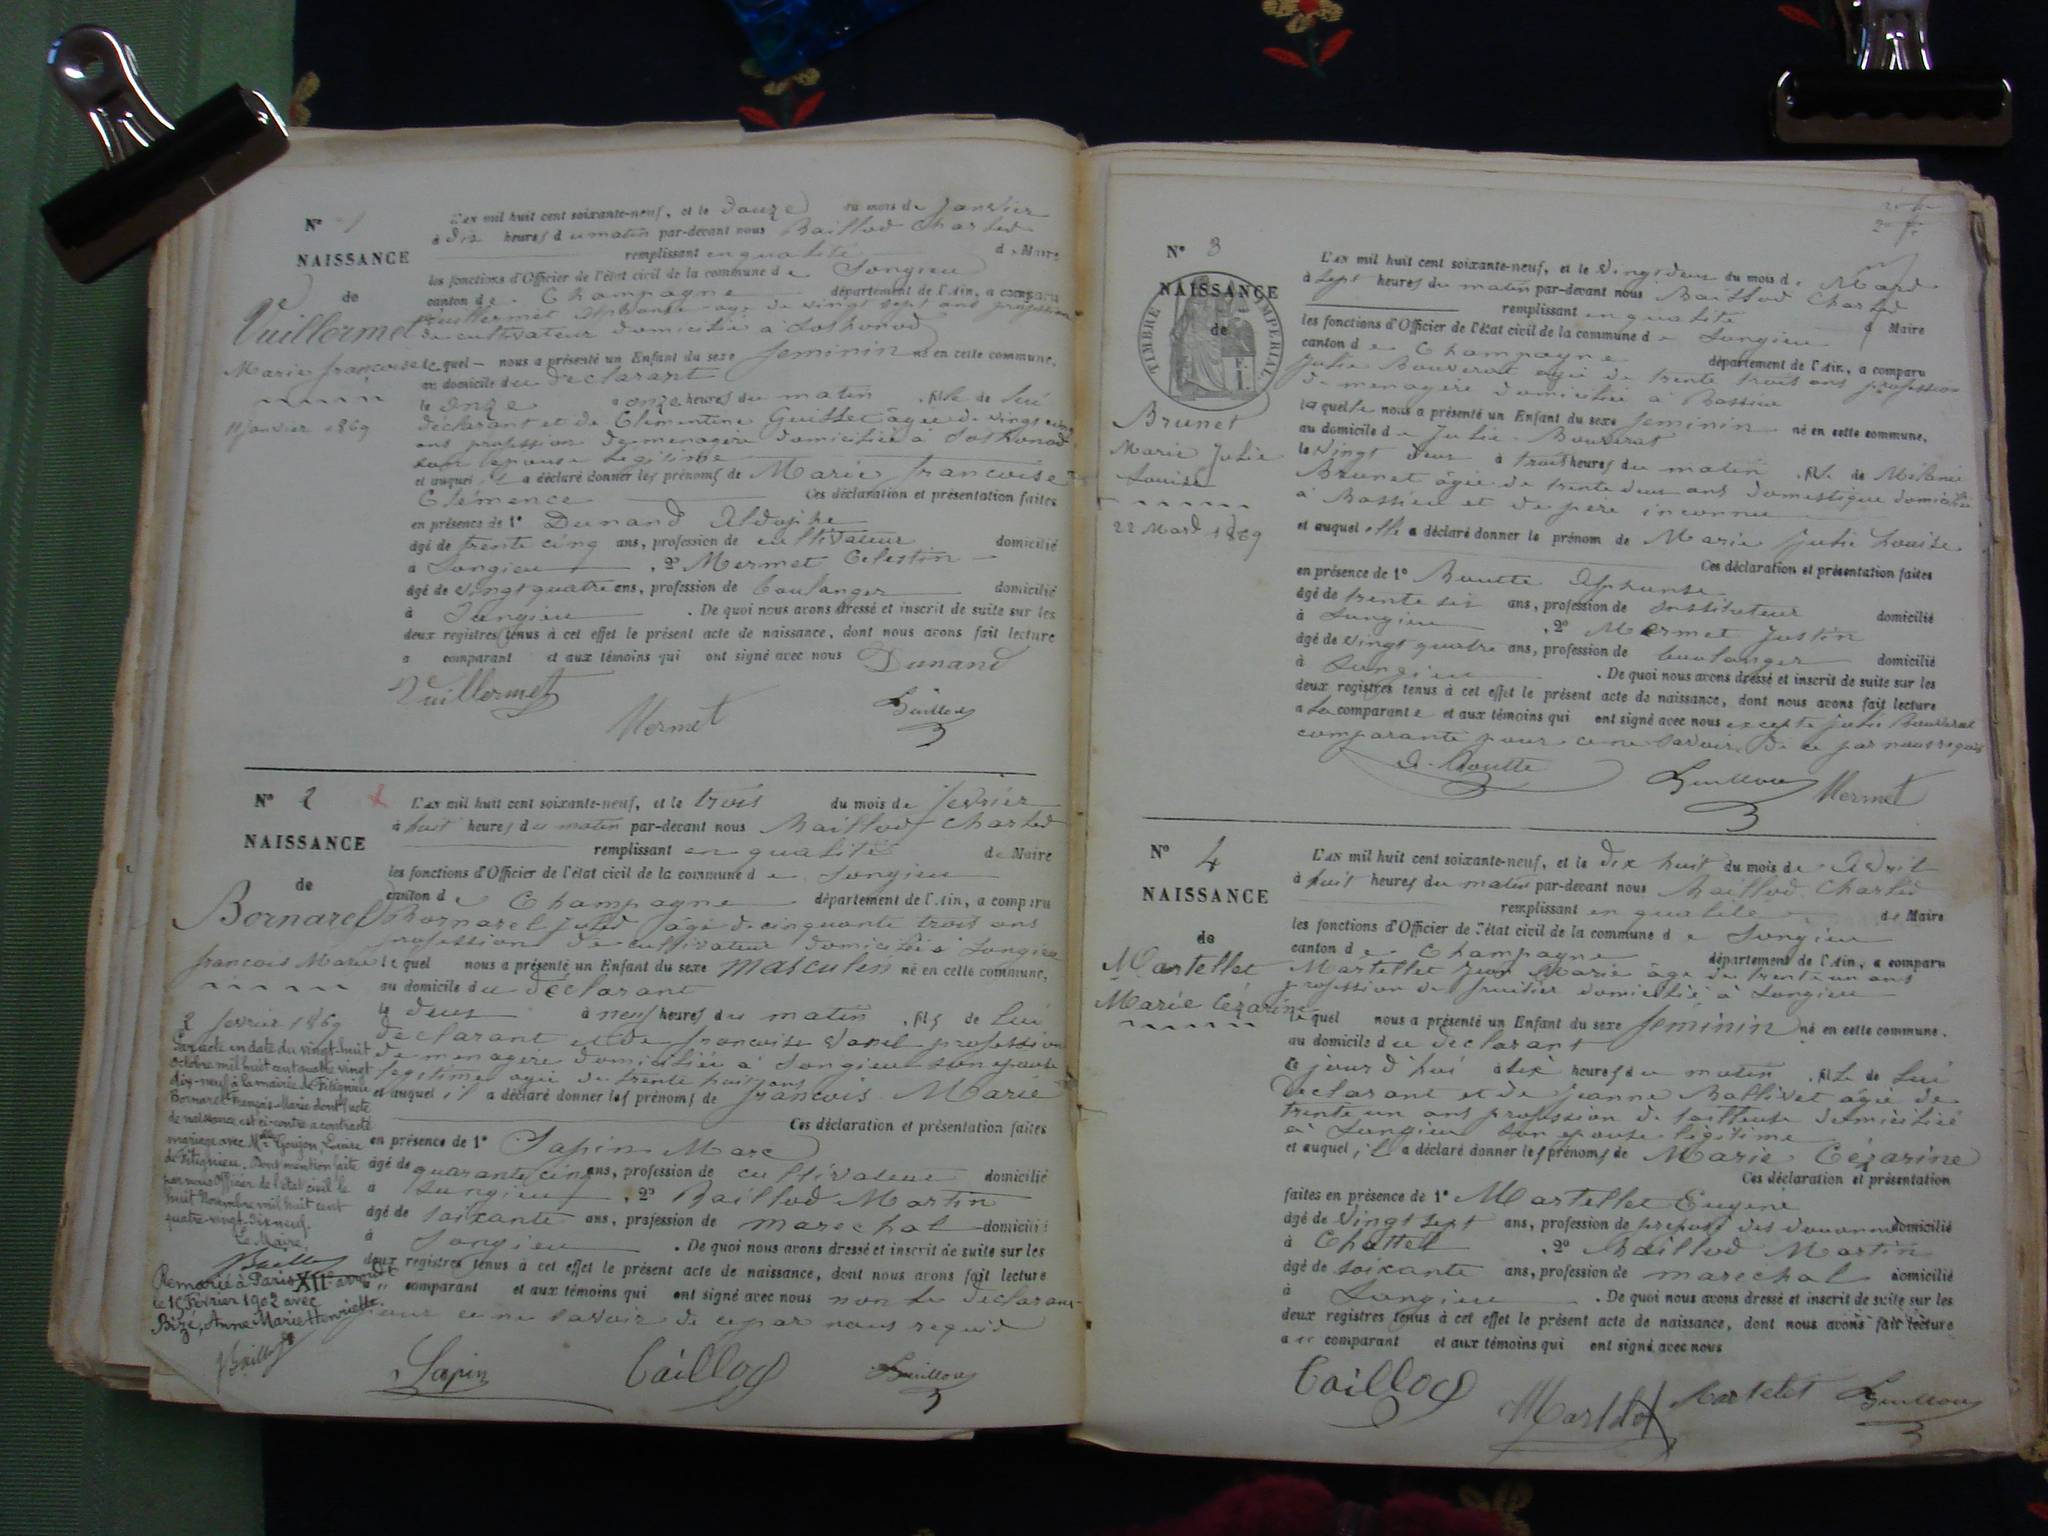 N° 1
NAISSANCE
de
Vuillermet
Marie françoise
11 janvier 1869
L'AN mil huit cent soixante-neuf, et le douze du mois de janvier
à dix heures du matin par-devant nous Baillod Charles
remplissant en qualité de Maire
les fonctions d'Officier de l'état civil de la commune de Songieu
canton de Champagne département de l'Ain, a comparu
Vuillermet âgé de vingt sept ans profession
de cultivateur domicilié à Lothonod
lequel nous a présenté un Enfant du sexe feminin né en cette commune,
au domicile du déclarant
le onze à onze heures du matin, fille de lui
déclarant et de Clémentine Guillet âgée de vingt
ans profession de menagère domiciliée à Lothonod
son épouse légitime
et auquel il a déclaré donner les prénoms de Marie françoise
Clémence Ces déclaration et présentation faites
en présence de 1° Dunand Aldophe
âgé de trente cinq ans, profession de cultivateur domicilié
à Songieu, 2° Mermet Celestin
âgé de vingt quatre ans, profession de boulanger domicilié
à Songieu. De quoi nous avons dressé et inscrit de suite sur les
deux registres tenus à cet effet le présent acte de naissance, dont nous avons fait lecture
a comparant et aux témoins qui ont signé avec nous Dunand
Vuillermet
Mermet
Baillod
N° 2
NAISSANCE
de
Bornarel
francois Marie
2 fevrier 1869
Par acte en date du vingt-huit
Octobre mil huit cent quatre vingt
dix-neuf à la mairie de Fitignieu
Bornarel François-Marie dont l'acte
de naissance est ci-contre a contracté
mariage avec Melle Goujon, Louise
de Fitignieu. Dont mention faite
par nous Officier de l'état civil le
huit Novembre mil huit cent
quatre-vingt-dix neuf.
Le Maire,
Remarié à Paris XIIe arrondt
le 15 Février 1902 avec
Bizé, Anne Marie Henriette.
L'AN mil huit cent soixante-neuf, et le trois du mois de fevrier
à huit heures du matin par-devant nous Baillod Charles
remplissant en qualité de Maire
les fonctions d'Officier de l'état civil de la commune de Songieu
canton de Champagne département de l'Ain, a comparu
Bornarel Jules âgé de cinquante trois ans
profession de cultivateur domicilié à Songieu
lequel nous a présenté un Enfant du sexe masculin né en cette commune,
au domicile du déclarant
le deux à neuf heures du matin, fils de lui
déclarant et de francoise profession
de menagère domiciliée à Songieu son épouse
légitime agée de trente huit ans
et auquel il a déclaré donner les prénoms de françois Marie
Ces déclaration et présentation faites
en présence de 1° Sapin Marc
âgé de quarante cinq ans, profession de cultivateur domicilié
à Songieu, 2° Baillod Martin
âgé de soixante ans, profession de marechal domicilié
à Songieu. De quoi nous avons dressé et inscrit de suite sur les
deux registres tenus à cet effet le présent acte de naissance, dont nous avons fait lecture
comparant et aux témoins qui ont signé avec nous non le declarant
pour ce ne savoir de ce par nous requis
Sapin Baillod Baillod
2e fe
N° 3
NAISSANCE
de
TIMBRE IMPERIAL
Brunet
Marie Julie
Louise
22 Mars 1869
L'AN mil huit cent soixante-neuf, et le vingt deux du mois de Mars
à sept heures du matin par-devant nous Baillod Charles
remplissant en qualité d Maire
les fonctions d'Officier de l'état civil de la commune de Songieu
canton de Champagne département de l'Ain, a comparu
Julie Bouverat agée de trente trois ans profession
de menagère domiciliée à Bassieu
laquelle nous a présenté un Enfant du sexe feminin né en cette commune,
au domicile de Julie Bouverat
le vingt deux à trois heures du matin, fille de Mélanie
Brunet âgée de trente deux ans domestique domiciliée
à Bassieu et de père inconnu
et auquel elle a déclaré donner le prénom de Marie Julie Louise
Ces déclaration et présentation faites
en présence de 1° Boutte Alphonse
âgé de trente six ans, profession de instituteur domicilié
à Songieu, 2° Mermet Justin
âgé de vingt quatre ans, profession de boulanger domicilié
à Songieu. De quoi nous avons dressé et inscrit de suite sur les
deux registres tenus à cet effet le présent acte de naissance, dont nous avons fait lecture
a la comparante et aux témoins qui ont signé avec nous excepté Julie Bouverat
comparante pour ce ne savoir de ce par nous requis
A. Boutte Baillod Mermet
N° 4
NAISSANCE
de
Martellet
Marie Cézarine
L'AN mil huit cent soixante-neuf, et le dix huit du mois de Avril
à huit heures du matin par-devant nous Baillod Charles
remplissant en qualité de Maire
les fonctions d'Officier de l'état civil de la commune de Songieu
canton de Champagne département de l'Ain, a comparu
Martellet Jean Marie âgé de trente un ans
profession de fruitier domicilié à Songieu
lequel nous a présenté un Enfant du sexe feminin né en cette commune.
au domicile du déclarant
ce jourd'hui à six heures du matin, fille de lui
declarant et de Jeanne Ballivet âgée de
trente un ans profession de tailleuse domiciliée
à Songieu son épouse légitime
et auquel il a déclaré donner les prénoms de Marie Cézarine
Ces déclaration et présentation
faites en présence de 1° Martellet Eugène
âgé de vingt sept ans, profession de préposé des douanes domicilié
à Chattel, 2° Baillod Martin
âgé de soixante ans, profession de marechal domicilié
à Songieu. De quoi nous avons dressé et inscrit de suite sur les
deux registres tenus à cet effet le présent acte de naissance, dont nous avons fait lecture
comparant et aux témoins qui ont signé avec nous
Baillod Martelet Baillod